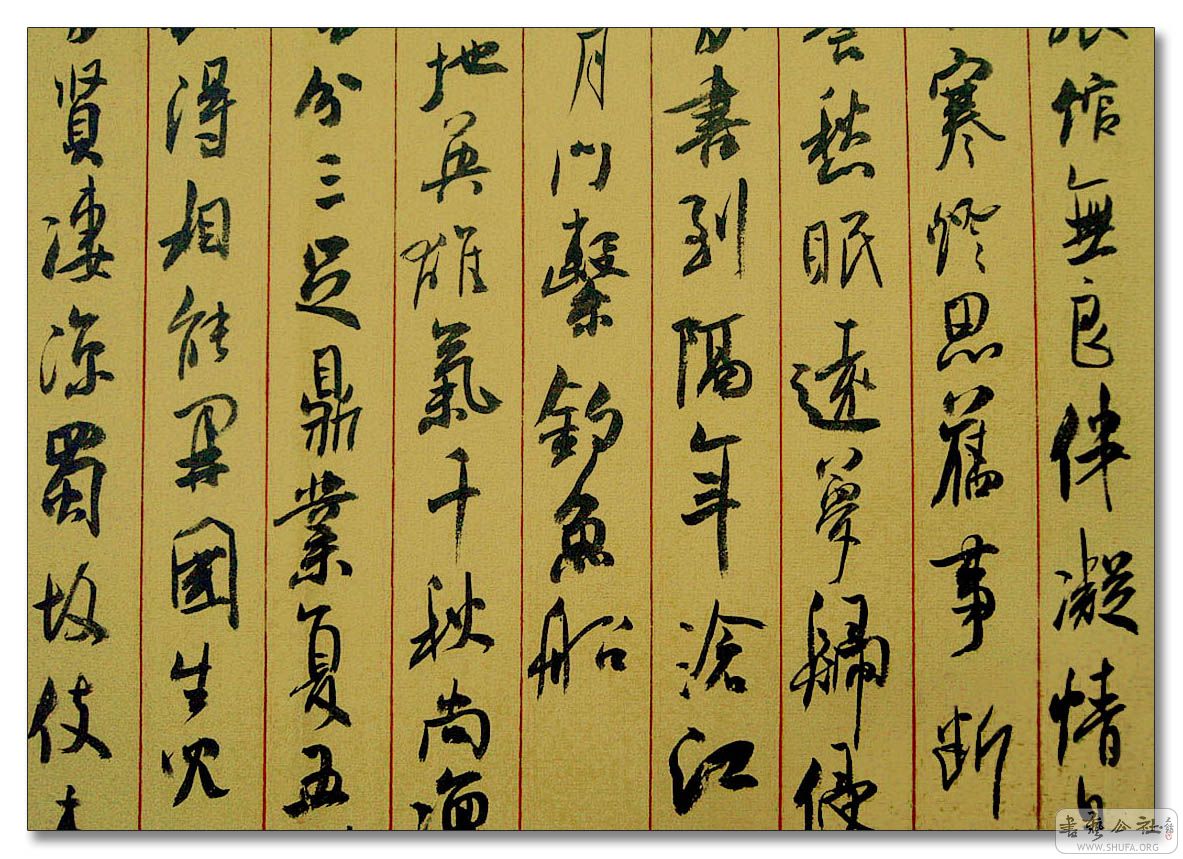 館無良伴凝情自
寒燈思舊事断
愁眠遠夢歸侵
書到隔年滄江
月門繫釣魚船
地英雄氣千秋尚凛
分三足鼎業复五
得相能開國生兒
賢淒涼蜀故伎
書藝公社
WWW.SHUFA.ORG